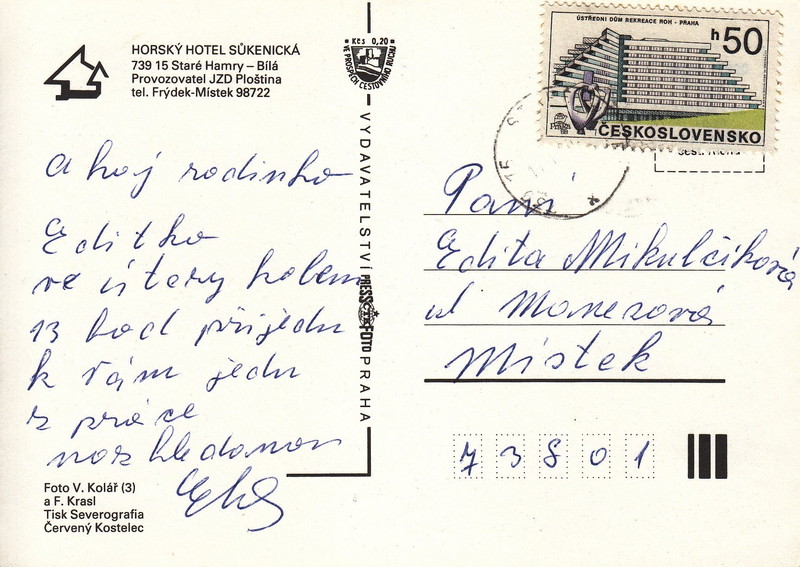 HORSKÝ HOTEL SŮKENICKÁ
739 15 Staré Hamry – Bílá
Provozovatel JZD Ploština
tel. Frýdek-Místek 98722
Kčs 0,20
VE PROSPĚCH CESTOVNÍHO RUCHU
ÚSTŘEDNÍ DŮM REKREACE ROH - PRAHA
h50
ČESKOSLOVENSKO
Ahoj rodinko
Editko
ve úterý kolem
13 hod přijedu
k Vám jedu
z práce
nashledanou
VYDAVATELSTVÍ
PRESSFOTO
PRAHA
Paní
Edita Mikulčíková
ul Manesová
Místek
73801
Foto V. Kolář (3)
a F. Krasl
Tisk Severografia
Červený Kostelec